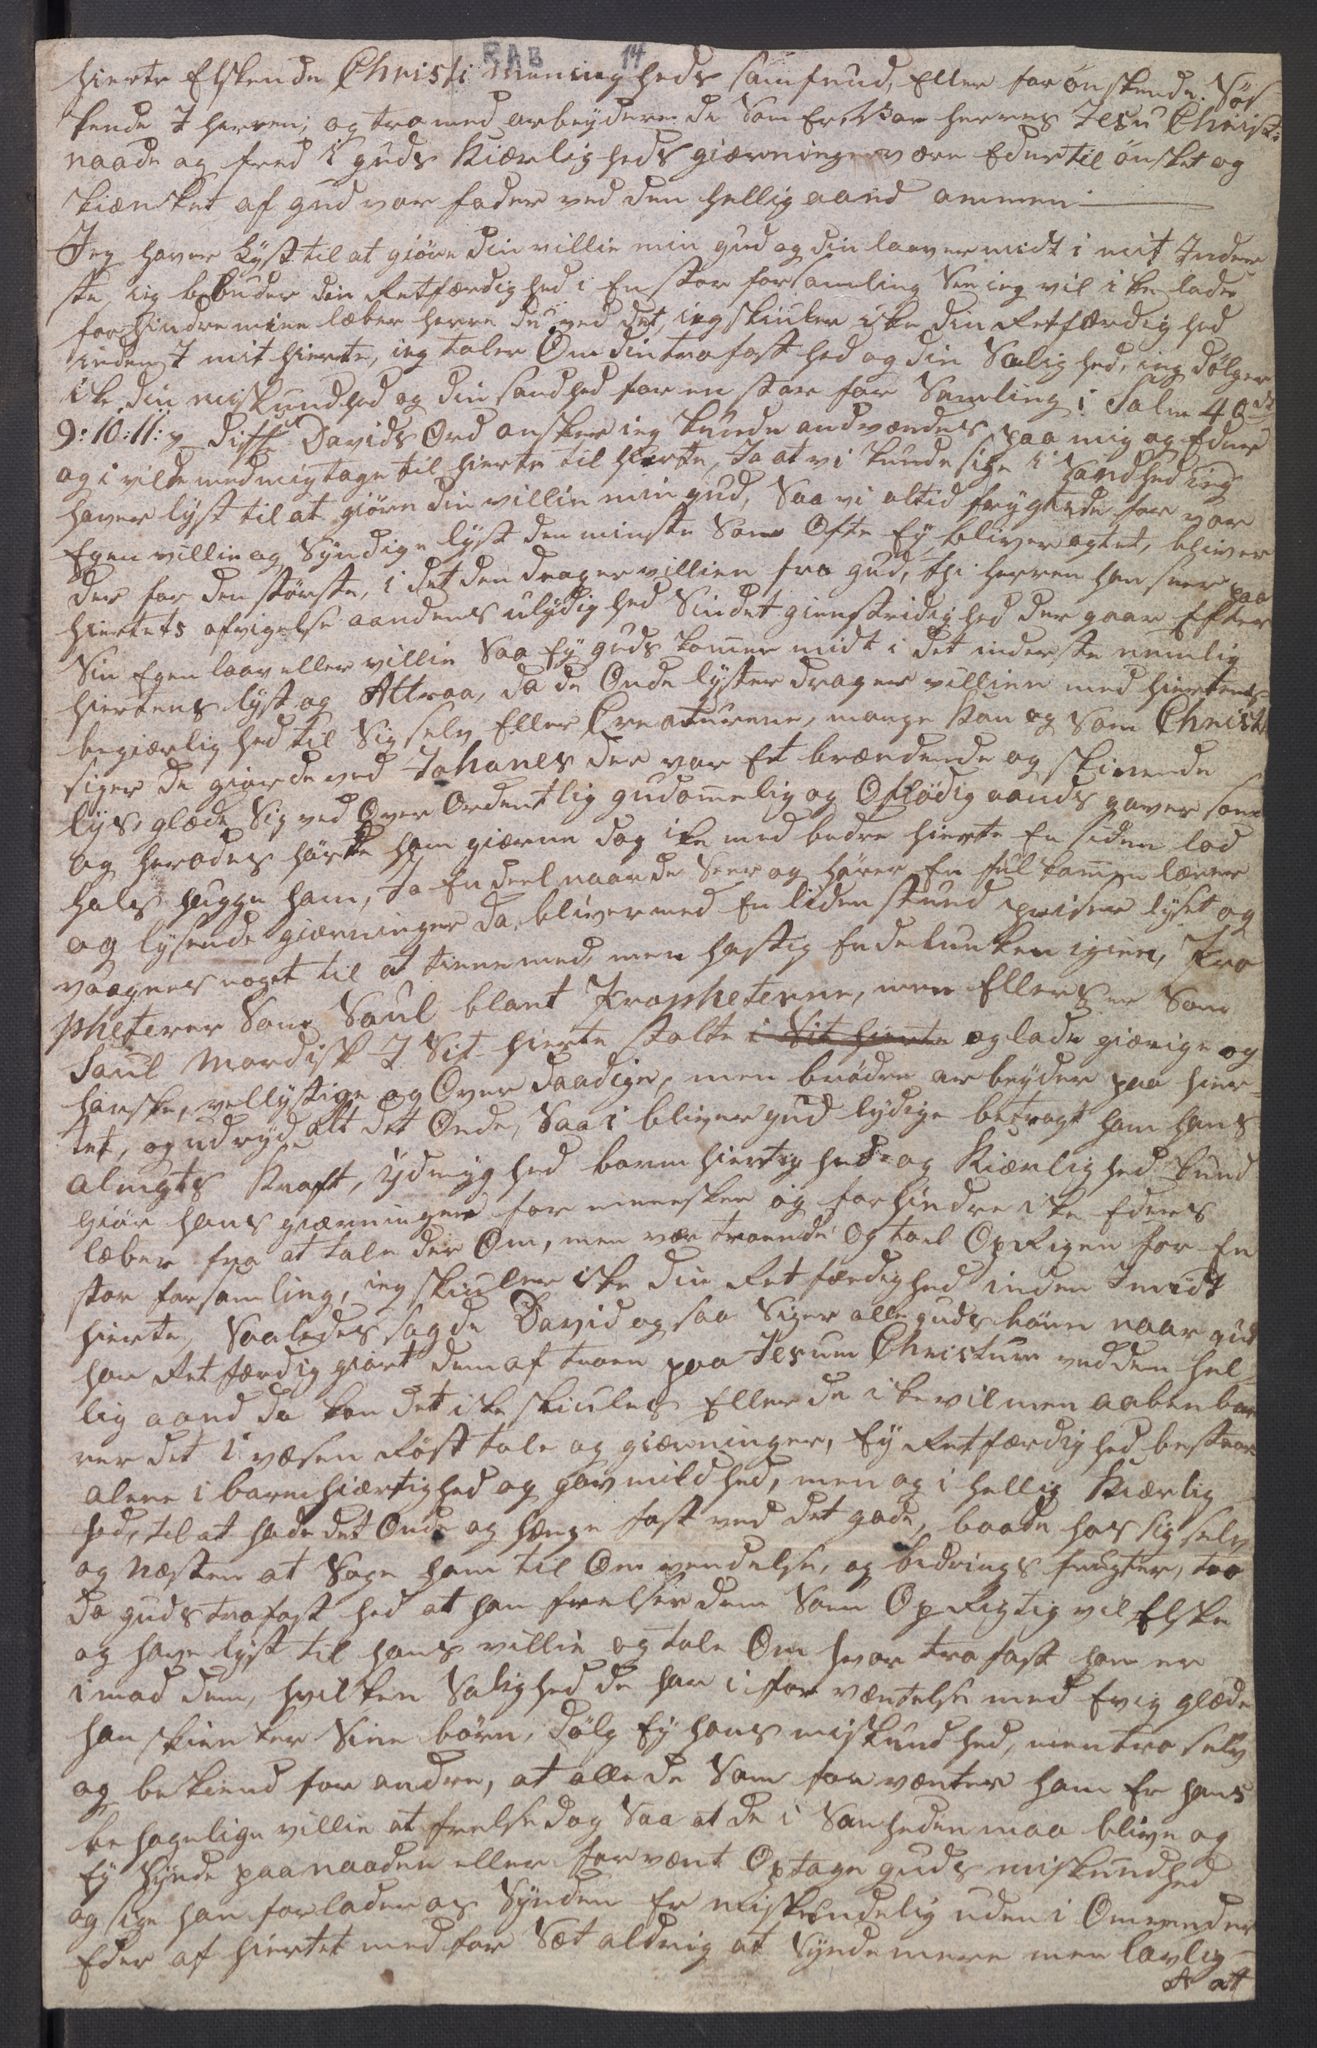 RAB 14
hierte Elskende Christi Menigheds samfund, Eller forønskende Søs
kende I herren, og troe med arbeydere de Som Er Vor herres Jesu Christi
naade og fred i guds Kiærligheds giærninger være Eder til ønsket og
skiænket af gud vor fader ved den hellig aand ammen
Jeg haver Lyst til at giøre din villie min gud og din laaver midt i mit Inder
ste, ieg bebuder din Retfærdighed i En stor forsamling See ieg vil icke lade
forhindre mine læber herre du ved det, ieg skiuler icke din Retfærdighed
inden I mit hierte, ieg taler Om din trofasthed og din Salighed, ieg dølger
icke din miskundhed og din sandhed for en stor for Samling i Salm 40 de
9: 10: 11: v disse Davids Ord ønsker ieg kunde andvendes paa mig og Eder
og i vilde med mig tage til hierte til hierte, Ja at vi kunde sige i Sandhed ieg
haver lyst til at giøre din villie min gud, Saa vi altid frygtede for vor
Egen villie og Syndige lyst den minste Som Ofte Ey bliver agtet, bliver
der for den største, i det den drager villien fra gud, thi herren han seer paa
hiertets afvigelse aandens ulydighed Sindet gienstridighed der gaar Efter
Sin Egen laav eller villie Saa Ey guds kommer midt i det inderste nemlig
hiertens lyst og Attraa, da de Onde lyster drager villien med hiertens
begiærlighed til Sig selv Eller Creaturene, mange kan og Som Christus
siger de giorde ved Johanes der var Et brændende og skinende
lys, glæde Sig ved Over Ordentlig gudommelig og Oflødig aands gaver som
og herodes hørte ham giærne dog icke med bedre hierte En siden lod
hals hugge ham, Ja En deel naar de Seer og hører En fulkommen lærer
og lysende giærninger da bliver med En liden stund priser lyset og
vaagnes noget til at tienne med, men hastig Ende lunken igien, Pro
pheterer Som Saul blant Propheterne, men Ellers er Som
Saul Mordisk I Sit hierte stolte i Sit hierte og lade giærige og
harske, vellystige og Over daadige, men brødre arbeyder paa hier
tet, og udryde alt det Onde, Saa i bliver gud lydige betragt ham hans
almagts Kraft, Ydmyghed barmhiertighed og Kiærlighed kund
giør hans giærninger for mennesker og forhindre icke Eders
læber fra at tale der Om, men vær troende og tael OpRigen for En
stor forsamling, ieg skiuler icke din Retfærdighed inden I midt
hierte, Saaledes sagde David og saa Siger alle guds børn naar gud
har Retfærdig giort dem af troen paa Jesum Christum ved den hel
lig aand da kan det icke skiules Eller de icke vil men aabenbar
rer det i væsen Røst tale og giærninger, Ey Retfærdighed bestaar
alene i barmhiærtighed og gavmildhed, men og i hellig Kiærlig
hed, til at hade det Onde og hænge fast ved det gode, baade hos sig selv
og Næsten at Søge ham til Omvendelse, og bedrings frugter, troe
da guds trofasthed at han frelser dem Som OpRigtig vil Elske
og have lyst til hans villie og tale Om hvor trofast han er
imod dem, hvilken Salighed de har i for væntelse med Evig glæde
han skienker Sine børn, dølg Ey hans miskundhed, men troe selv
og bekiend for andre, at alle de Som forvænter ham Er hans
behagelige villie at frelse dog Saa at de i Sanheden maa blive og
Ey Synde paa naaden eller forvent Optage guds miskundhed
og sige han forlader os Synden Er miskundelig uden i Omvender
Eder af hiertet med for Sæt aldrig at Synde mere men lovlig
at